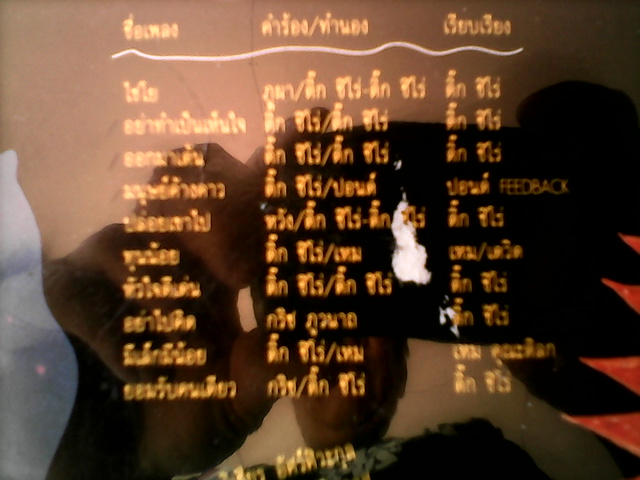 ชื่อเพลง คำร้อง/ทำนอง เรียบเรียง
ไชโย ภูผา/ติ๊ก ชีโร่-ติ๊ก ชีโร่ ติ๊ก ชีโร่
อย่าทำเป็นเห็นใจ ติ๊ก ชีโร่/ติ๊ก ชีโร่ ติ๊ก ชีโร่
ออกมาเต้น ติ๊ก ชีโร่/ติ๊ก ชีโร่ ติ๊ก ชีโร่
มนุษย์ค้างคาว ติ๊ก ชีโร่/ปอนด์ ปอนด์ FEEDBACK
ปล่อยเขาไป หวัง/ติ๊ก ชีโร่-ติ๊ก ชีโร่ ติ๊ก ชีโร่
ทุนน้อย ติ๊ก ชีโร่/เหม เหม/เดวิด
หัวใจดีเด่น ติ๊ก ชีโร่/ติ๊ก ชีโร่ ติ๊ก ชีโร่
อย่าไปคิด กวิช ภูวนาถ ติ๊ก ชีโร่
มีเล็กมีน้อย ติ๊ก ชีโร่/เหม เหม
ยอมรับคนเดียว กวิช/ติ๊ก ชีโร่ ติ๊ก ชีโร่